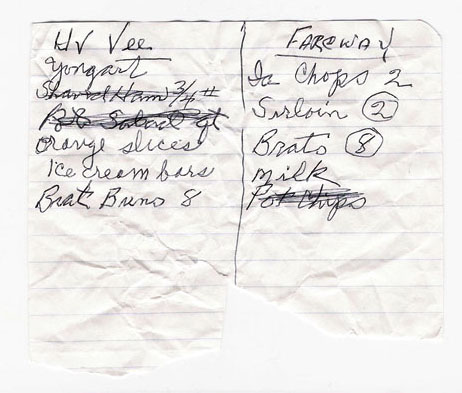 HV Vee
Yongart
Shaved Ham 3/4 #
Salad qt
orange slices
Ice cream bars
Brats Buns 8
FAREWAY
Ia Chops 2
Sirloin 2
Brats 8
milk
Pot Chips